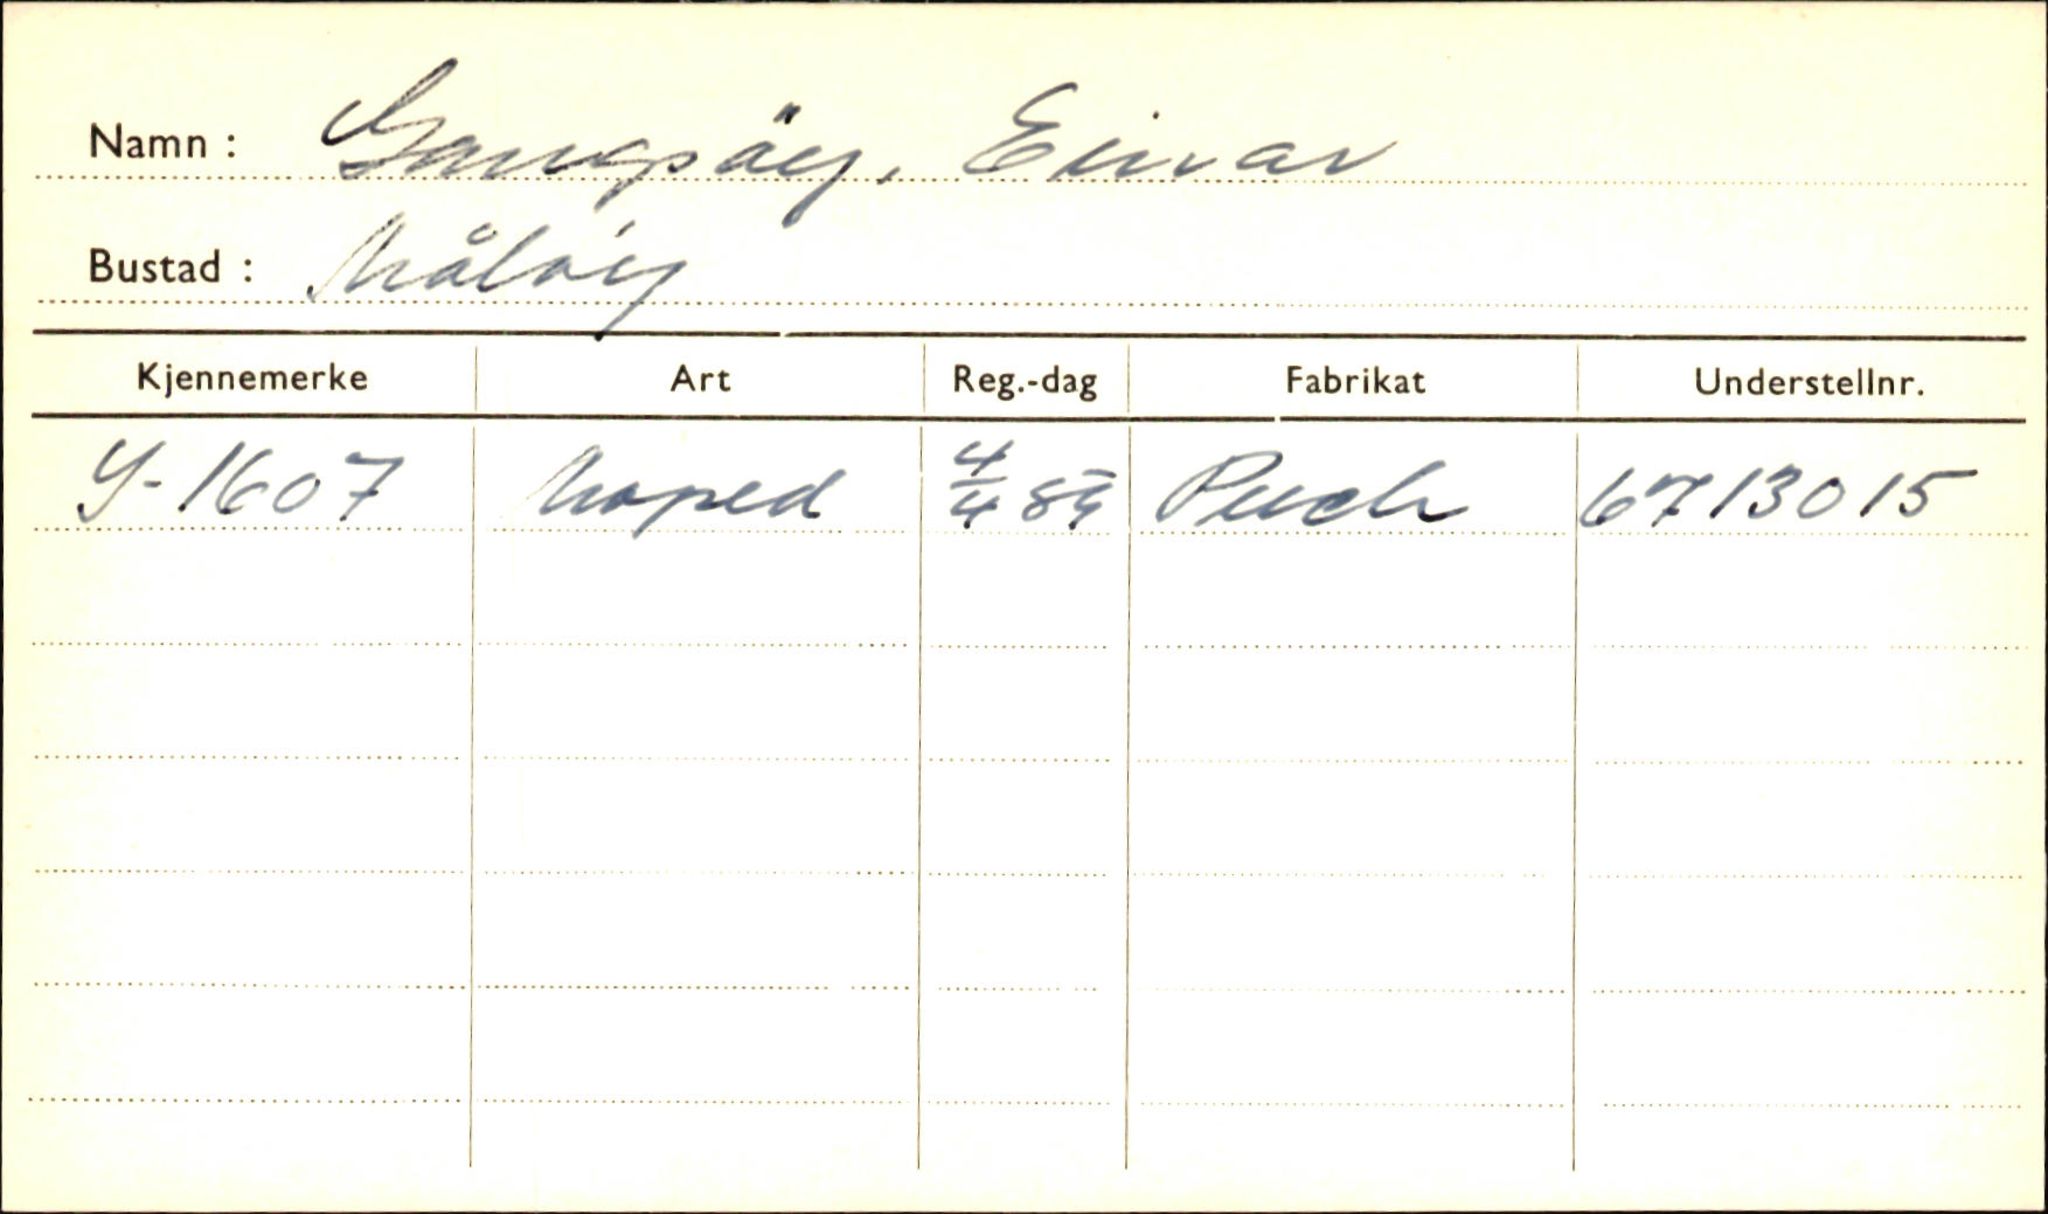 Namn : Gangsöy, Einar
Bustad : Måløy
Kjennemerke Art Reg.-dag Fabrikat Understellnr.
Y-1607 Moped 4/4 89 Puch 6713015